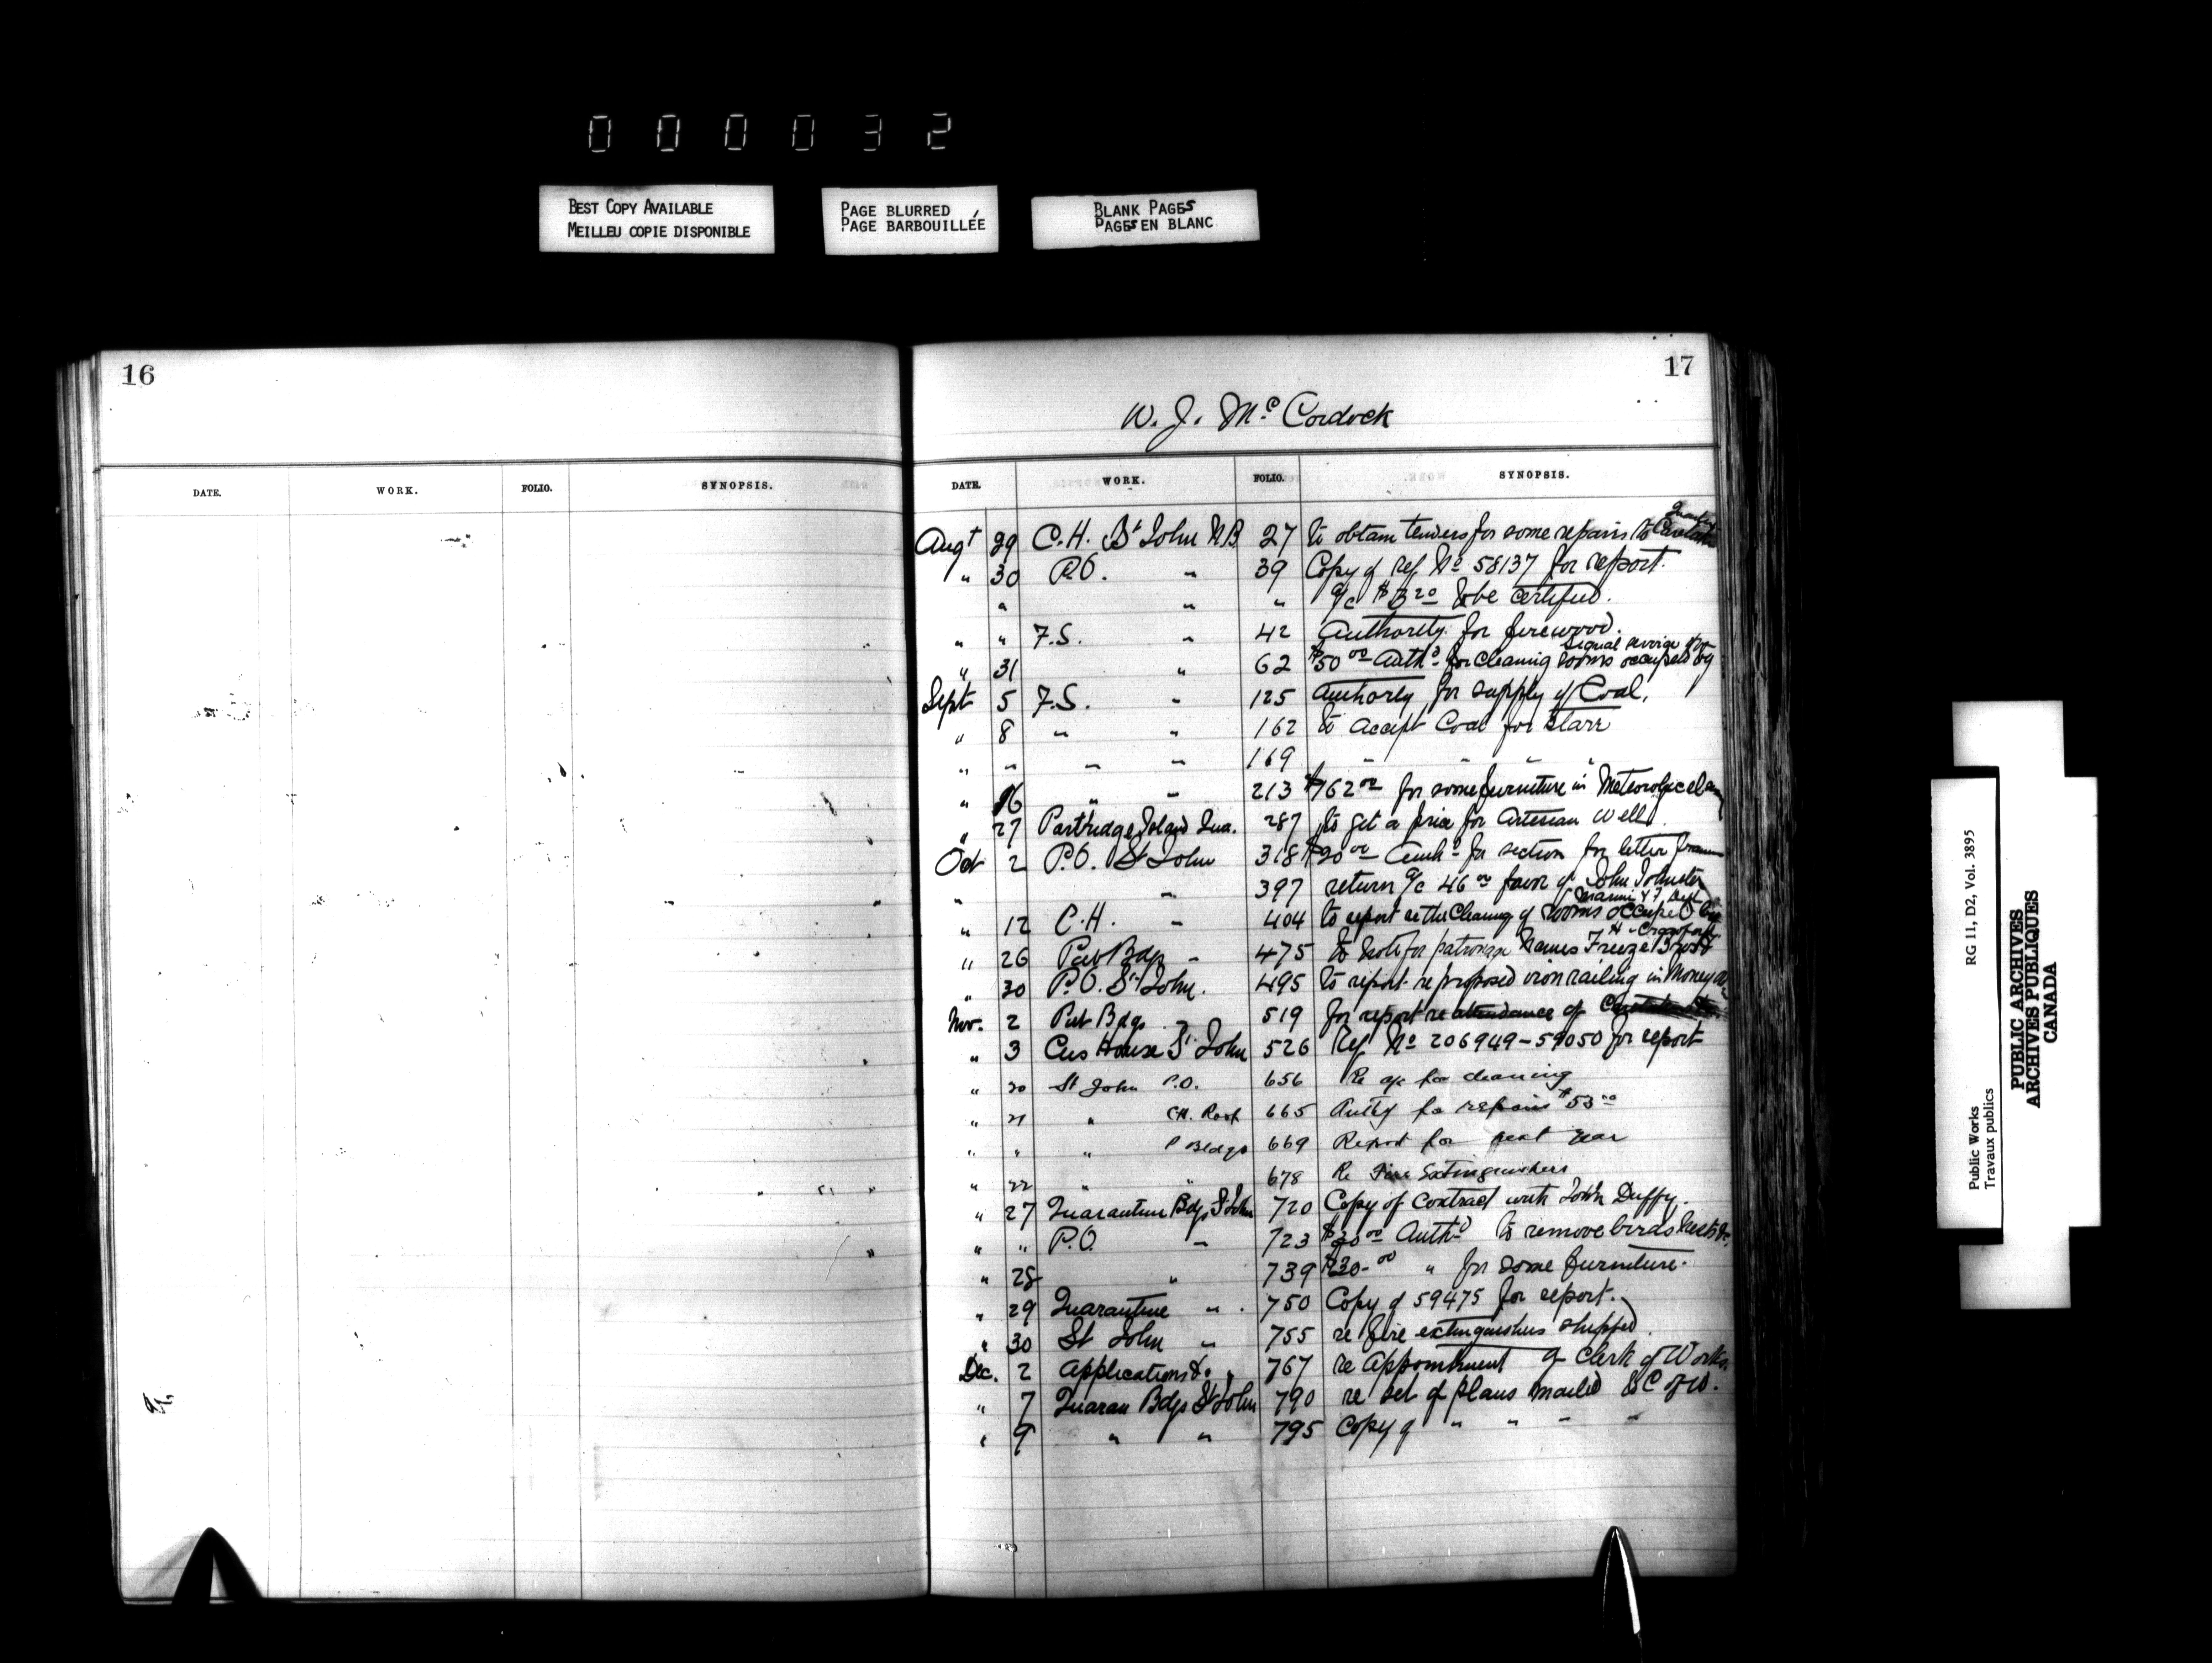 000032
BEST COPY AVAILABLE
MEILLEU COPIE DISPONIBLE
PAGE BLURRED
PAGE BARBOUILLÉE
BLANK PAGES
PAGES EN BLANC
16
DATE. WORK. FOLIO. SYNOPSIS.
17
W. J. McCordock
DATE. WORK. FOLIO. SYNOPSIS.
Augt 29 C.H. St John N.B. 27 to obtain tenders for some repairs to
" 30 P.O. " 39 Copy of Ref No 58137 for report.
" " " a/c $ to be certified.
" " F.S. " 42 Authority for firewood.
" 31 " 62 $50 00 Authd for cleaning rooms occupied by Signal service
Sept 5 F.S. " 125 authority for supply of Coal.
" 8 " " 162 to accept Coal for Starr
" " " " 169 " " " "
" 16 " " 213 $762 00 for some furniture in
" 27 Partridge Island Qua. 287 to get a price for Artesian Well.
Oct 2 P.O. St John 318 $20 00 Authd for section for letter
" " 397 return a/c 46 00 favor of John Johnston
" 12 C.H. " 404 to report re the Cleaning of rooms occupied by Marine & F. Dept
" 26 Pub Bdgs " 475 to note for patronage names
" 30 P.O. St John. 495 to report re proposed iron railing in Money
Nov. 2 Pub Bdgs 519 for report re attendance of
" 3 Cus House St John 526 Ref No 206949-59050 for report
" 20 St John P.O. 656 Re a/c for cleaning
" 21 " C.H. Roof 665 Authy for repairs $53 00
" " " P Bldgs 669 Report for past year
" 22 " " 678 Re Fire Extinguishers
" 27 Quarantine Bdgs St John 720 Copy of Contract with John Duffy.
" " P.O. " 723 $30 00 Authd to remove birds nests &c.
" 28 " 739 $30- 00 " for some furniture.
" 29 Quarantine " . 750 Copy of 59475 for report.
" 30 St John " 755 re fire extinguishers shipped
Dec. 2 Applications &c " 767 re Appointment of Clerk of Works.
" 7 Quaran Bdgs St John 790 re set of plans mailed to C of W.
" 9 " " 795 Copy of " " " "
RG 11, D2, Vol. 3895
Public Works
Travaux publics
PUBLIC ARCHIVES
ARCHIVES PUBLIQUES
CANADA